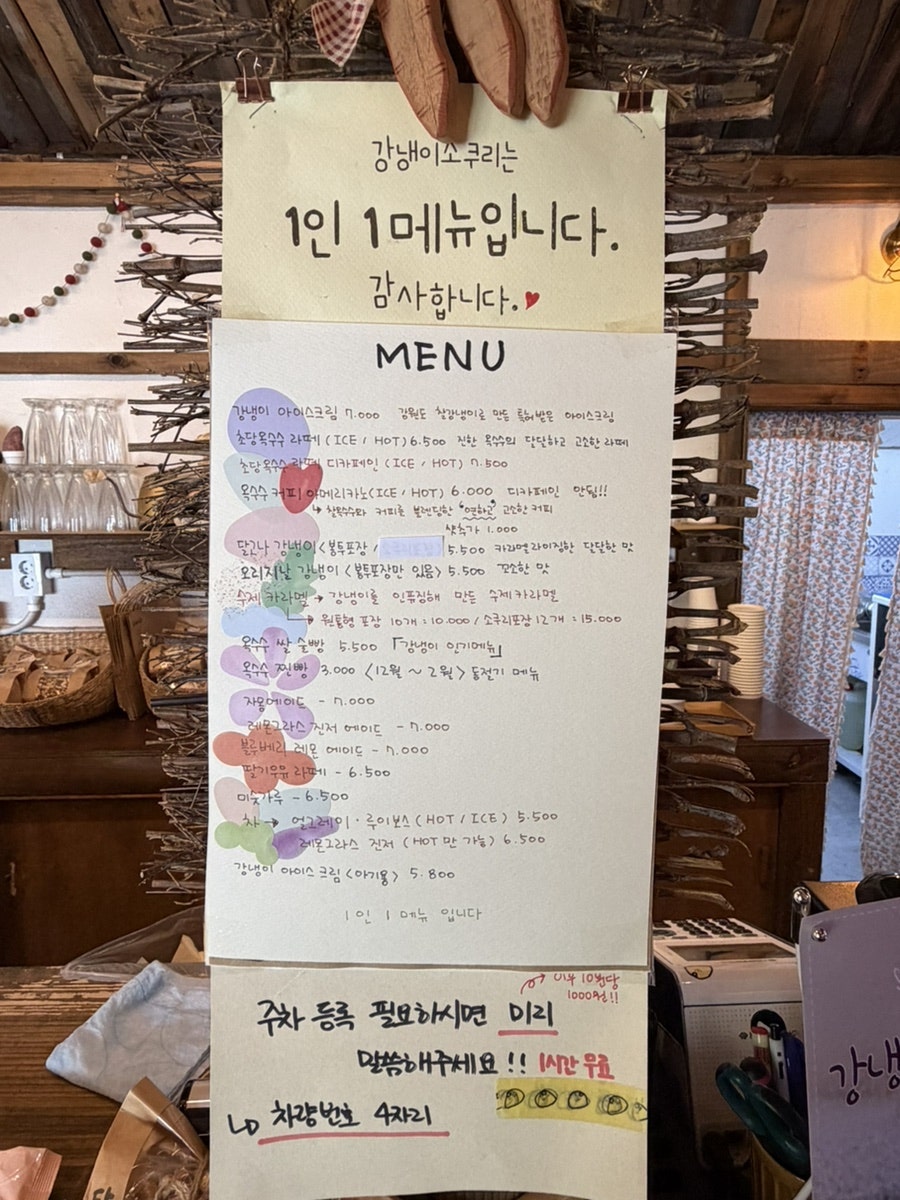 강냉이소쿠리는
1인 1메뉴입니다.
감사합니다.
MENU
강냉이 아이스크림 7.000 강원도 찰강냉이로 만든 특허받은 아이스크림
초당옥수수 라떼 (ICE / HOT) 6.500 진한 옥수수의 달달하고 고소한 라떼
초당옥수수 라떼 디카페인 (ICE / HOT) 7.500
옥수수 커피 아메리카노(ICE / HOT) 6.000 디카페인 안됨!!
↳ 찰옥수수와 커피를 블렌딩한 "연하고" 고소한 커피
샷추가 1.000
달고나 강냉이 <봉투포장 / 5.500 카라멜라이징한 달달한 맛
오리지날 강냉이 <봉투포장만 있음> 5.500 꼬소한 맛
수제 카라멜 → 강냉이를 인퓨징해 만든 수제카라멜
↳ 원통형 포장 10개 : 10.000 / 소쿠리포장 12개 : 15.000
옥수수 쌀 술빵 5.500 「강냉이 인기메뉴」
옥수수 찐빵 3.000 <12월 ~ 2월> 동절기 메뉴
자몽에이드 - 7.000
레몬그라스 진저 에이드 - 7.000
블루베리 레몬 에이드 - 7.000
딸기우유 라떼 - 6.500
미숫가루 - 6.500
차 → 얼그레이 · 루이보스 (HOT / ICE) 5.500
레몬그라스 진저 (HOT 만 가능) 6.500
강냉이 아이스크림 <아기용> 5.800
1인 1메뉴 입니다
이후 10분당
1000원!!
주차 등록 필요하시면 미리
말씀해주세요!! 1시간 무료
↳ 차량번호 4자리
강냉